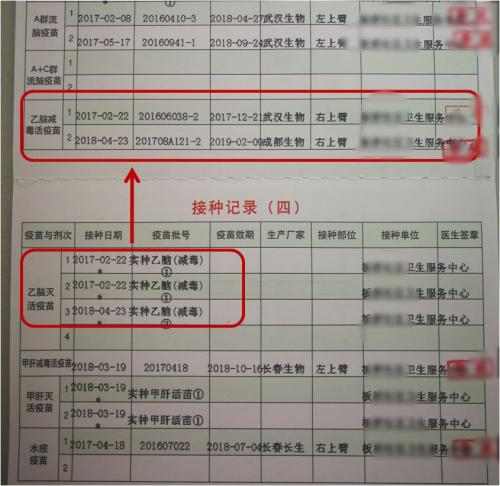 A群流脑疫苗 1 2017-02-08 20160410-3 2018-04-27 武汉生物 左上臂 卫生服务
2 2017-05-17 20160941-1 2018-09-24 武汉生物 左上臂 卫生服务中心
A+C群流脑疫苗 1
2
乙脑减毒活疫苗 1 2017-02-22 201606038-2 2017-12-21 武汉生物 右上臂 卫生服务中心
2 2018-04-23 201708A121-2 2019-02-09 成都生物 右上臂 卫生服务中心
接种记录（四）
疫苗与剂次 接种日期 疫苗批号 疫苗效期 生产厂家 接种部位 接种单位 医生签章
乙脑灭活疫苗 1 2017-02-22 实种乙脑(减毒)
* ① 卫生服务中心
2 2017-02-22 实种乙脑(减毒)
* ① 卫生服务中心
3 2018-04-23 实种乙脑(减毒)
* ② 板 卫生服务中心
4
甲肝减毒活疫苗 2018-03-19 20170418 2018-10-16 长春生物 左上臂 板 卫生服务
甲肝灭活疫苗 1 2018-03-19
* 实种甲肝活苗① 板 卫生服务中心
2 2018-03-19
* 实种甲肝活苗① 板 卫生服务中心
水痘疫苗 1 2017-04-18 201607022 2018-07-04 长春长生 右上臂 板 卫生服务中心
2